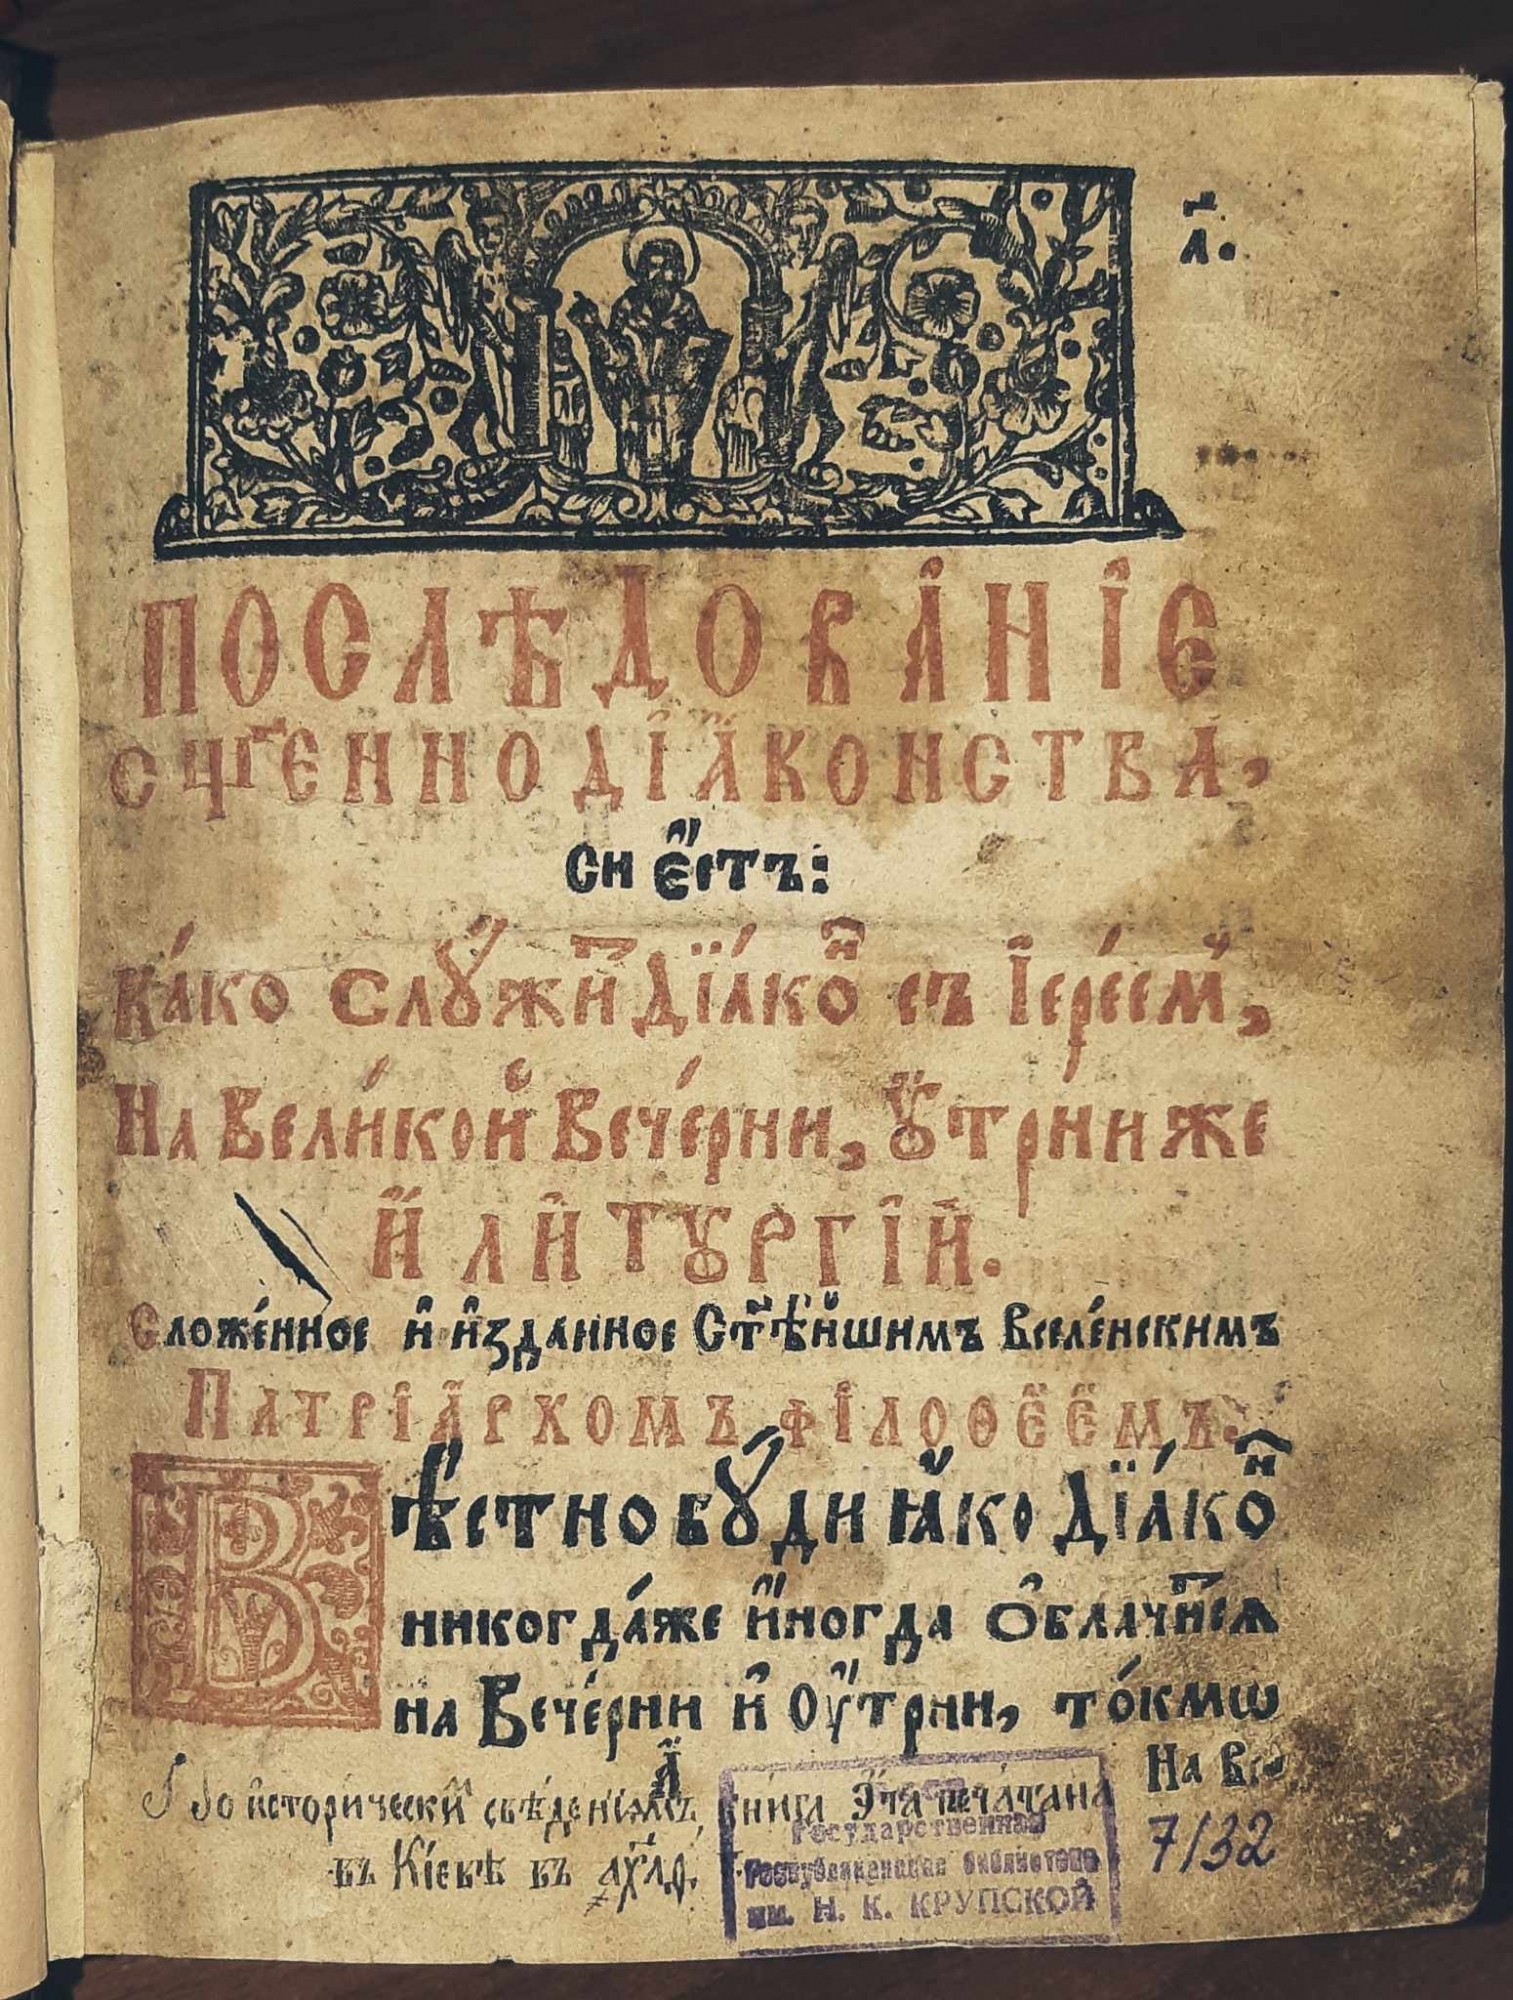 л҃.
ПОСЛѢДОВА́НІЕ
СЩ҃ЕННОДІА҆КОНСТВА,
Сѝ є҆́стъ:
Ка́ко Слꙋ́жит Дїа́кон съ І҆ере́ем,
На Вели́кой Вече́рни, Ꙋ҆́трни же
И҆ ЛИТꙊРГІ́И.
Сложе́нное и҆ и҆́зданное Ст҃ѣ́йшимъ Вселе́нскимъ
ПАТРІА́РХОМЪ ФІЛОѲЕ́ЕМЪ.
Вѣ́стно бꙋ́ди ꙗ҆́ко Дїа́кон
никогда́же и҆ногда Ѻ҆блачи́тсѧ
на Вече́рни и҆ Оу҆́трни, то́кмѡ
А҆
На Ве
По и҆стори́чески́м свѣ́дениѧмъ, книга э҆́та печа́тана
въ Кі́евѣ въ
7132
Государственная
Республиканская библиотека
им. Н. К. КРУПСКОЙ